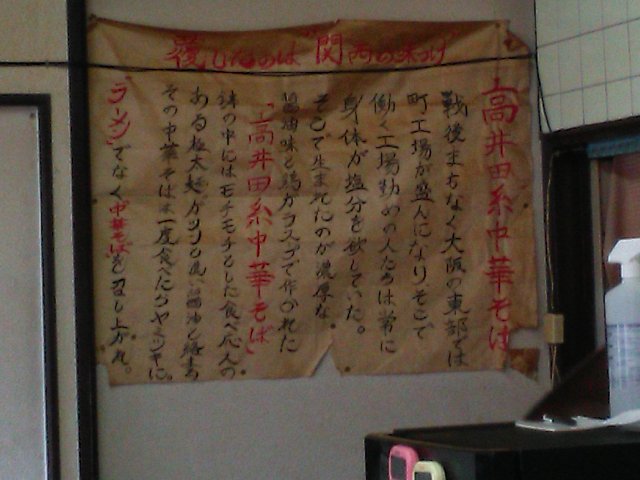 覆したのは"関西の味つけ"
高井田系中華そば
戦後まもなく大阪の東部では
町工場が盛んになりそこで
働く工場勤めの人たちは常に
身体が塩分を欲していた。
そこで生まれたのが濃厚な
醤油味と鶏ガラスープで作られた
「高井田系中華そば」
鉢の中にはモチモチとした食べ応えの
ある極太麺がかなり濃い醤油と絡まる
その中華そばは一度食べたらヤミツキに。
"ラーメン"でなく"中華そば"を召し上がれ。